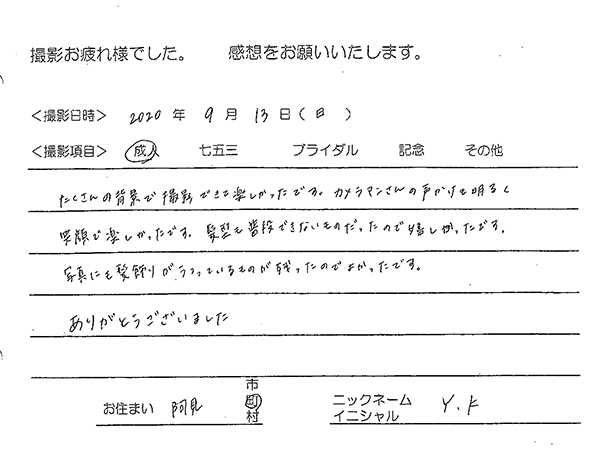 撮影お疲れ様でした。　感想をお願いいたします。
＜撮影日時＞ 2020 年 9 月 13 日（日）
＜撮影項目＞ 成人 七五三 ブライダル 記念 その他
たくさんの背景で撮影できて楽しかったです。カメラマンさんの声かけも明るく
笑顔で楽しかったです。髪型も普段できないものだったので嬉しかったです。
写真にも髪飾りがうつっているものが残ったのでよかったです。
ありがとうございました
お住まい 阿見 市町村 ニックネーム イニシャル Y.K